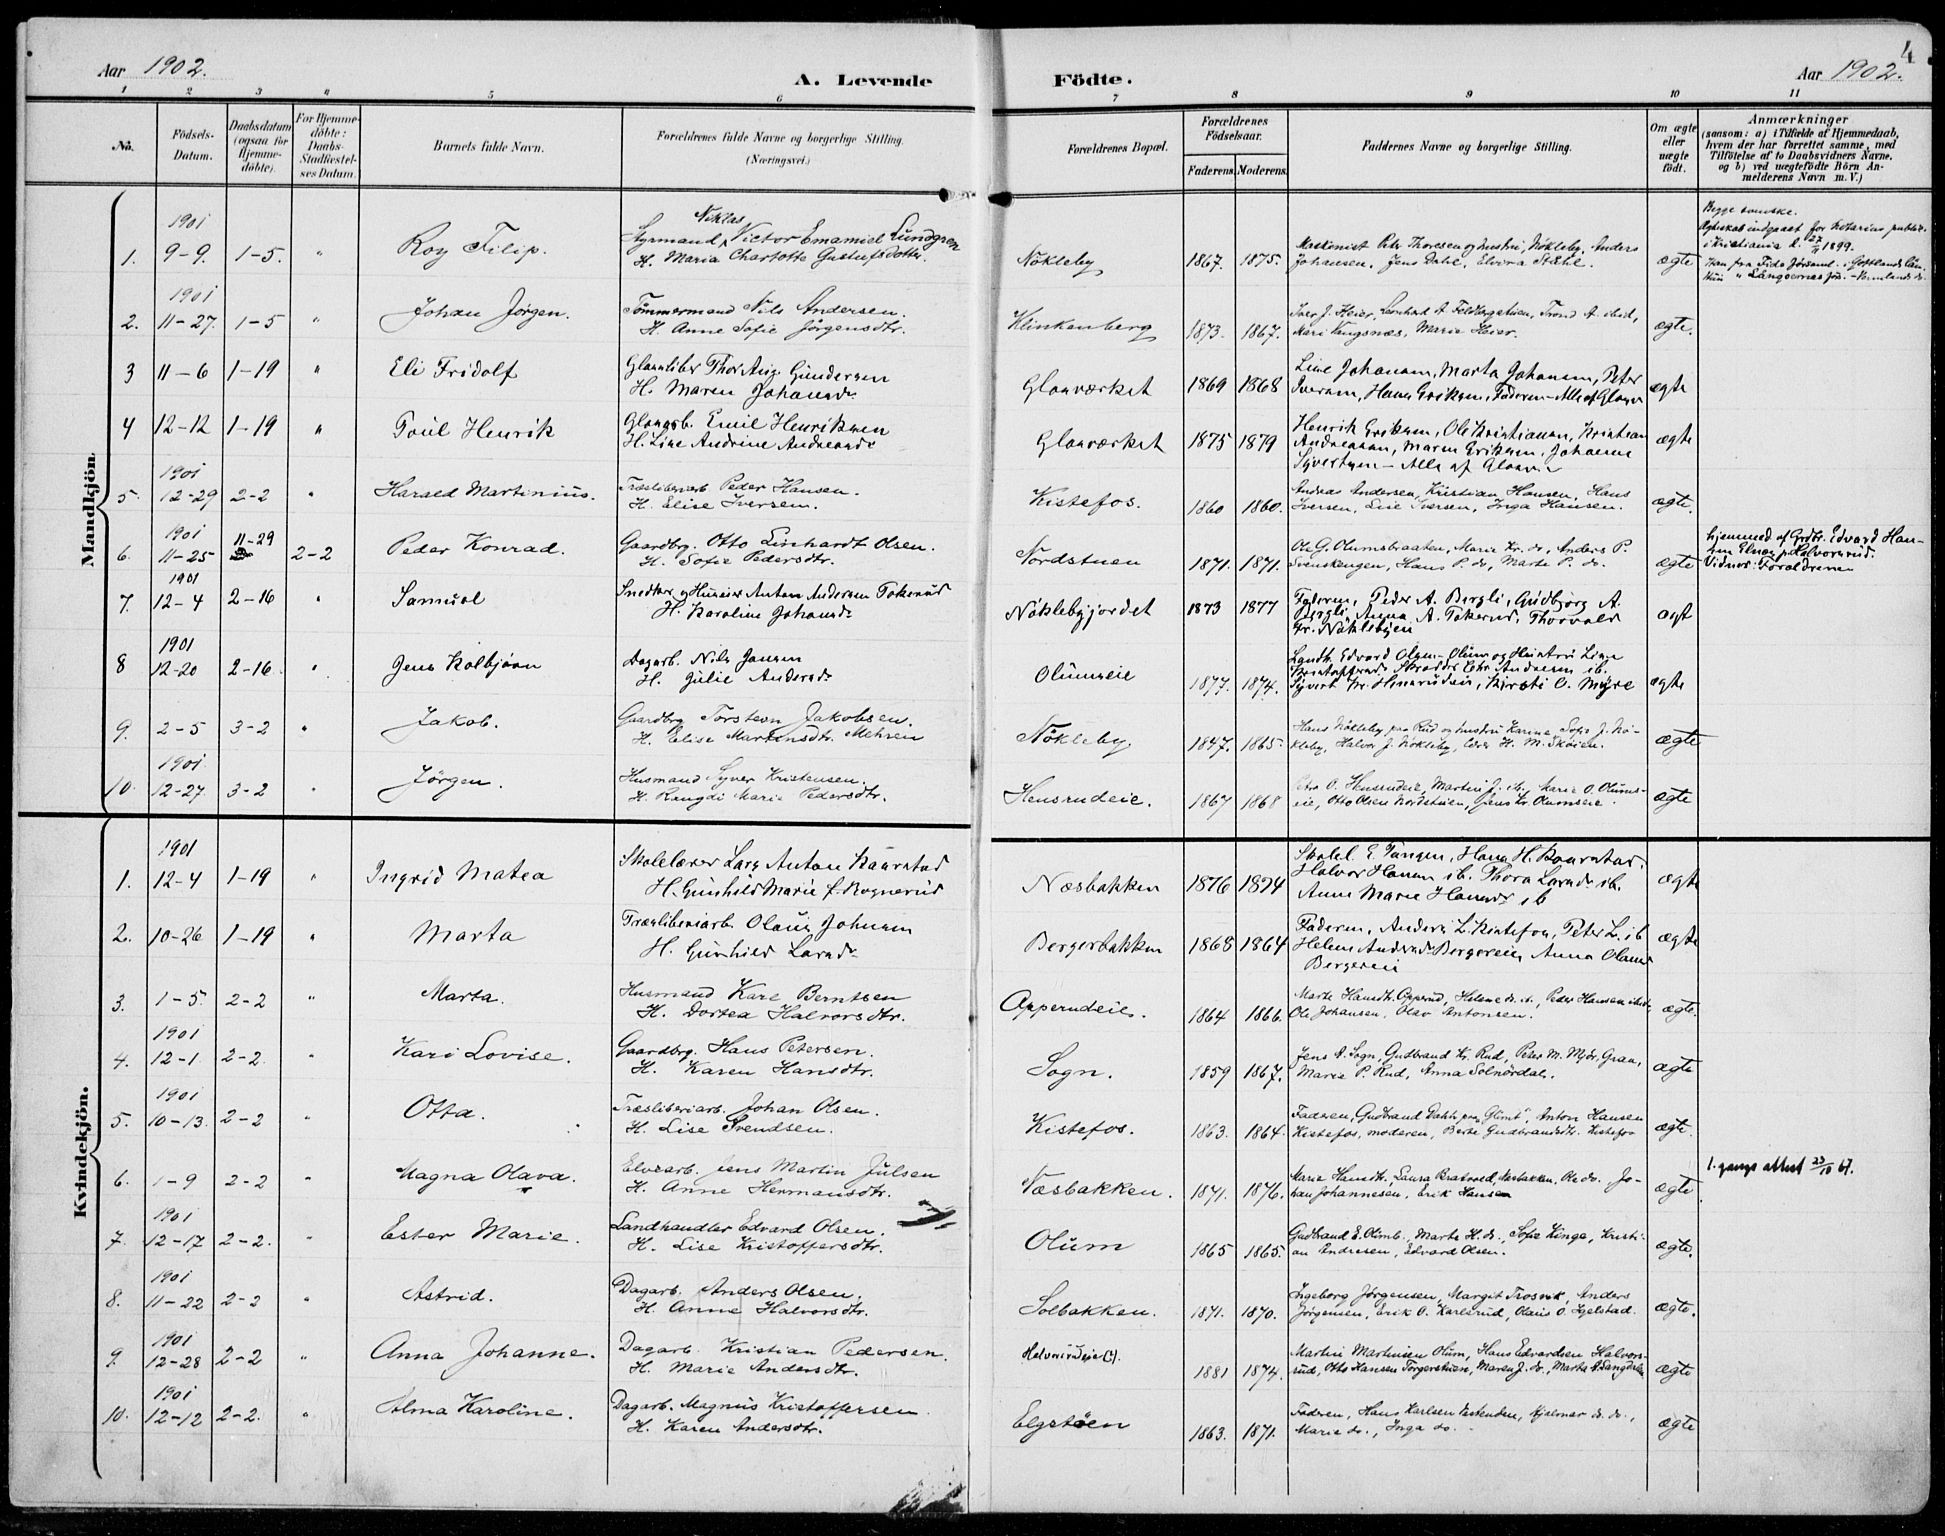 4
Aar 1902.
A. Levende Födte.
Aar 1902.
1 2 3 4 5 6 7 8 9 10 11
No.
Födsels-
Datum.
Daabsdatum
(ogsaa for
Hjemme-
döbte).
For Hjemme-
döbte:
Daabs-
Stadfæstel-
ses Datum.
Barnets fulde Navn.
Forældrenes fulde Navne og borgerlige Stilling.
(Næringsvei.)
Forældrenes Bopæl.
Forældrenes
Födselsaar.
Faderens. Moderens.
Faddernes Navne og borgerlige Stilling.
Om ægte
eller
uægte
født.
Anmærkninger
(saasom: a) i Tilfælde af Hjemmedaab,
hvem der har forrettet samme, med
Tilföielse af to Daabsvidners Navne,
og b) ved uægtefödte Börn An-
melderens Navn m. V.)
Mandkjön.
1. 1901 9-9. 1-5. " Roy Filip.
Styrmand Niklas Victor Emamiel Lundgren
H. Maria Charlotte Gustafsdotter.
Nökleby 1867. 1875.
Maskinist Peter Thoresen og hustru, Nökleby, Anders
Johansen, Jens Dahl, Elvira Stæhl.
ægte
Begge svenske.
Ægteskab indgaaet for notarius publicus
i Kristiania d. 27/ 1899.
2. 1901 11-27. 1-5 " Johan Jörgen.
Tömmermand Nils Andersen.
H. Anne Sofie Jörgensdtr.
Klinkenberg 1873. 1867.
Iver J. Heier, Leonhard A. Feldbergstuen, Trond A. ibid,
Mari Vangsnæs, Marie Heier.
ægte.
3 11-6 1-19 " Eli Fridolf
Glassliber Thor Aug. Gundersen
H. Maren Johansdr
Glasværket 1869 1868
Line Johansen, Marta Johansen, Peter
Iversen, Hans Eriksen, Faderen - Alle af Glasv
ægte
4 12-12 1-19 " Poul Henrik
Glassarb. Emil Henriksen
H. Line Andrine Andreasdr
Glasværket 1875 1879
Henrik Eriksen, Ole Kristiansen, Kristian
Andreassen, Maren Eriksen, Johanne
Syvertsen - Alle af Glasv
ægte
5. 1901 12-29 2-2 " Harald Martinius.
Træsliberiarb. Peder Hansen.
H. Elise Iversen.
Kistefos. 1860 1860.
Andreas Andersen, Kristian Hansen, Hans
Iversen, Lise Iversen, Inga Hansen.
ægte.
6. 1901 11-25 11-29 2-2 Peder Konrad.
Gaardbrg. Otto Linhardt Olsen.
H. Sofie Pedersdtr.
Nordstuen 1871. 1871.
Ole G. Olumsbraaten, Marie Kr. do, Anders P.
Svenskengen, Hans P. do, Marte P. do.
ægte
hjemmed. af Grdbr. Edvard Han-
sen Elnæs p. Halvorsrud.
Vidner: Forældrene
7. 1901 12-4 2-16 " Samuel
Snedker og Huseier Anton Andersen Tokerud
H. Karoline Johansdr
Nöklebyjordet 1873 1877
Faderen, Peder A. Bergli, Gudbjörg A.
Bergli, Anna A. Tokerud, Thorvald
Kr. Nöklebyen
ægt
8 1901 12-20 2-16. " Jens Kolbjörn
Dagarb. Nils Jensen
H. Julie Andersdr
Olumseie 1877. 1874.
Landh. Edvard Olsen - Olum og Hustru Lise
Kristoffersdr Skrædder Chr. Andresen ib.
Syvert Kr. Hensrudeie, Kirsti O. Myre
ægte
9. 2-5 3-2 " Jakob.
Gaardbrg Torstein Jakobsen.
H. Elise Martinsdtr. Mehren
Nökleby. 1847. 1865.
Hans Nökleby paa Rud og hustru Karine, Sofie J. Nö-
kleby, Halvor J. Nökleby, H. M. Sköien.
ægte
10. 1901. 12-27. 3-2 " Jörgen.
Husmand Syver Kristensen.
H. Rangdi Marie Pedersdtr.
Hensrudeie. 1867 1868
O. Hensrudeie, Martin J. ib, Marie O. Olums-
eie, Otto Olsen Nordstuen, Jens Kr. Olumseie.
ægte
Kvindekjön.
1. 1901 12-4 1-19 " Ingrid Matea
Skolelærer Lars Anton Kaarstad
H. Gunhild Marie f. Rognerud
Næsbakken 1876 1874
Skolel. E. Tangen, Hans H. Kaarstad,
Halvor Hansen ib. Thora Larsdr ib.
Anne Marie Hansdr ib
ægte
2. 10-26 1-19 " Marta
Træsliberiarb. Olaus Johnsen
H. Gunhild Larsdr
Bergerbakken 1868 1864
Faderen, Anders L. Kistefos, Peter L. ib
Helene Andersdr Bergereie, Anna Olausd
Bergereie
ægte
3. 1-5. 2-2 " Marta.
Husmand Kare Berntsen
H. Dortea Halvorsdtr.
Opperudeie. 1864 1866.
Marte Hansdtr. Opperud, Helene do. ib., Peder Hansen ibid,
Ole Johansen, Olav Antonsen.
ægte.
4. 1901 12-1. 2-2. " Kari Lovise.
Gaardbrg. Hans Petersen.
H. Karen Hansdtr.
Sogn. 1859 1867.
Jens A. Sogn, Gudbrand Kr. Rud, Peter M. Myhr, Gran,
Marie P. Rud, Anna Solnördal.
ægte
5. 1901 10-13. 2-2 " Otta.
Træsliberiarb. Johan Olsen.
H. Lise Svendsen.
Kistefos. 1863. 1864.
Faderen, Gudbrand Dahl paa "Glimt", Anton Hansen
Kistefos, moderen, Berte Gudbrandsdtr. Kistefos
ægte.
6. 1-9 2-2 " Magna Olava.
Elvearb. Jens Martin Julsen
H. Anne Hermansdtr.
Næsbakken. 1871. 1876.
Marie Hansdtr, Laura Bratvold, Næsbakken, Ole do. Jo-
han Johannesen, Erik Hansen
ægte.
1. gangs attest 23/10 67.
7. 1901 12-17 2-2. " Ester Marie.
Landhandler Edvard Olsen.
H. Lise Kristoffersdtr.
Olum 1865 1865.
Gudbrand E. Olimb, Marte H. do., Sofie Kinge, Kristi-
an Andresen, Edvard Olsen.
ægte.
8. 1901 11-22 2-2 " Astrid.
Dagarb. Anders Olsen.
H. Anne Halvorsdtr.
Solbakken. 1871. 1870.
Ingeborg Jörgensen, Margit Trosvik, Anders
Jörgensen, Erik O. Karlsrud, Olaus O. Egelstad.
ægte.
9. 1901 12-28 2-2 " Anna Johanne.
Dagarb. Kristian Pedersen.
H. Marie Andersdtr.
Halvorsrudeie(?). 1881 1874.
Martin Martinsen Olum, Hans Edvardsen Halvors-
rud, Otto Hansen Torgerstuen, Maren J. do., Marta A. Langdalen
ægte
10. 1901 12-12 2-2. " Alma Karoline.
Dagarb. Magnus Kristoffersen
H. Karen Andersdtr.
Elgstöen 1863. 1871.
Fadren, Hans Karlsen Vestenden, Hjalmar do. do.,
Marie do., Inga do.
ægte